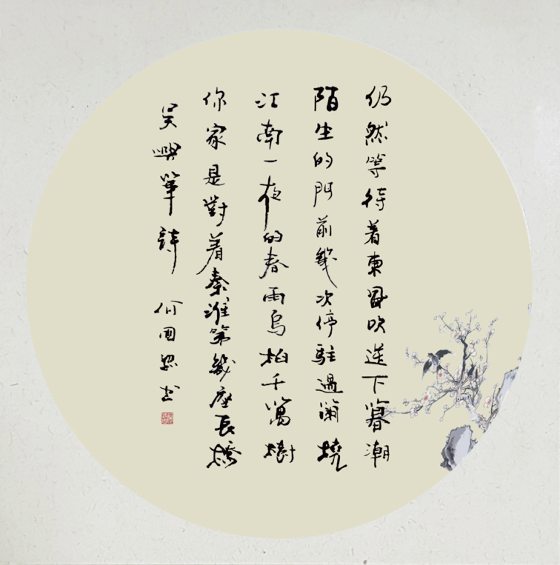 仍然等待着東風吹送下暮潮
陌生的門前幾次停駐過蘭橈
江南一夜的春雨烏桕千萬樹
你家是對着秦淮第幾座長橋
吴興華詩 何國书